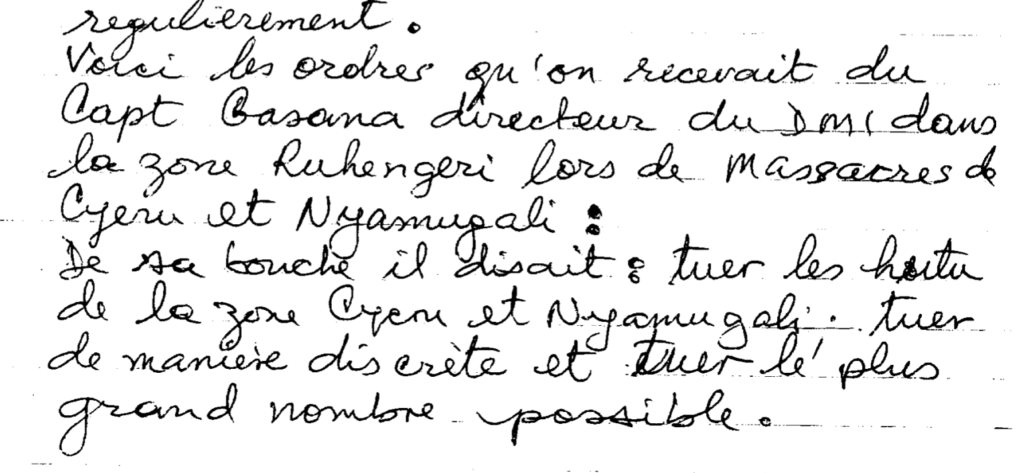 regulièrement.
Voici les ordres qu'on recevait du
Capt Gasana directeur du DMI dans
la zone Ruhengeri lors de Massacres de
Cyeru et Nyamugali :
De sa bouche il disait : tuer les hutu
de la zone Cyeru et Nyamugali. tuer
de manière discrète et tuer le plus
grand nombre possible.